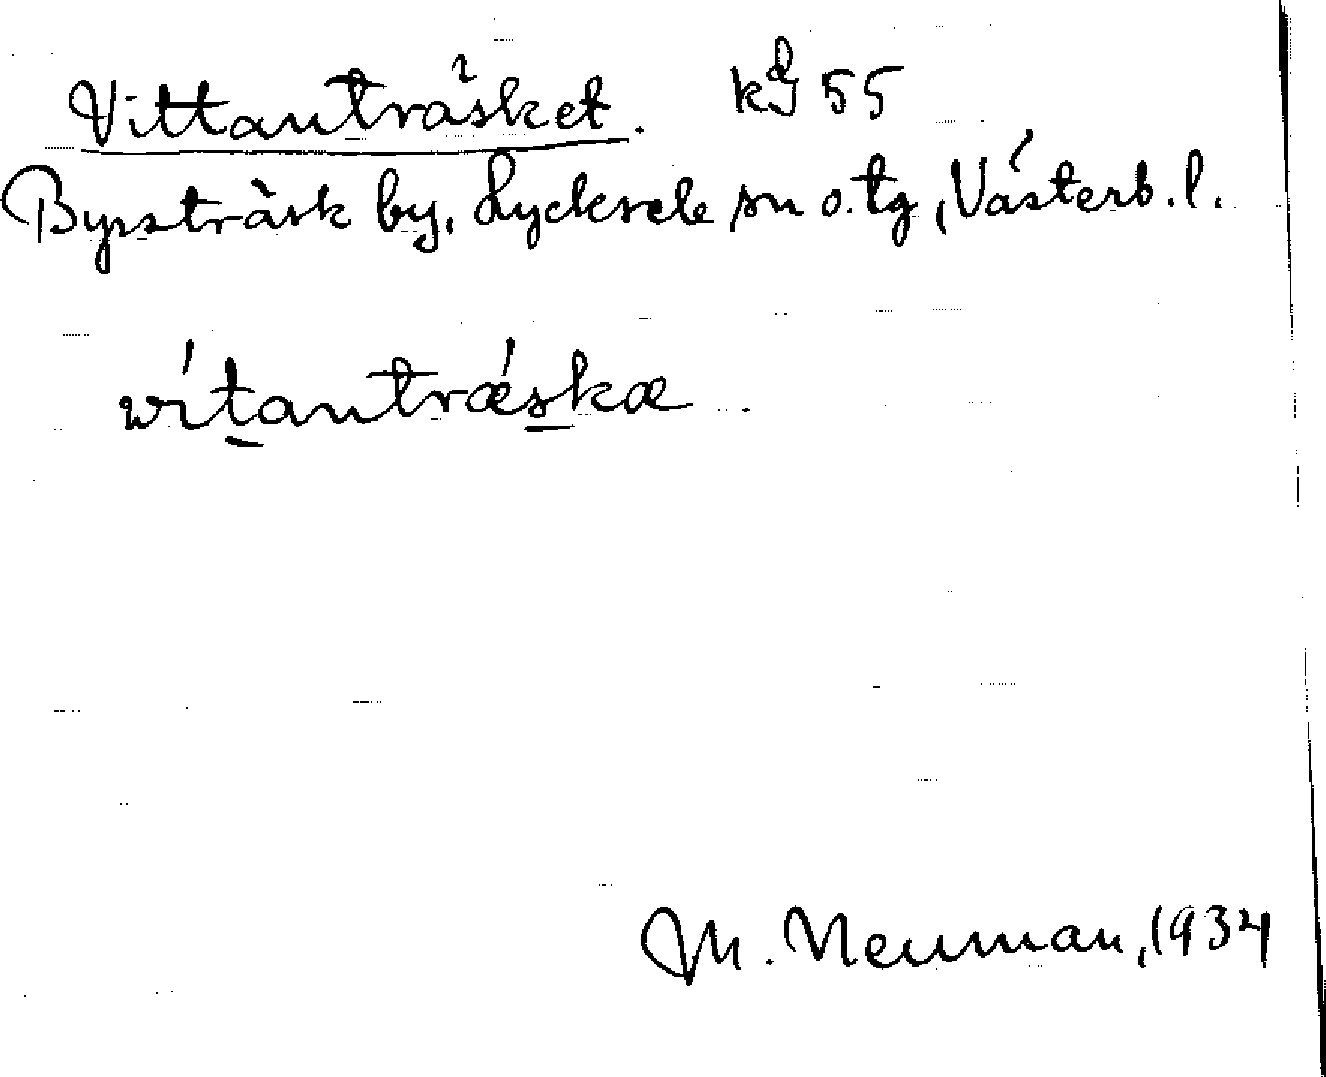 Vittanträsket. kg 55
Byssträsk by, Lycksele sn o. tg, Västerb. l.
vítantrǽskæ
M. Neuman, 1934